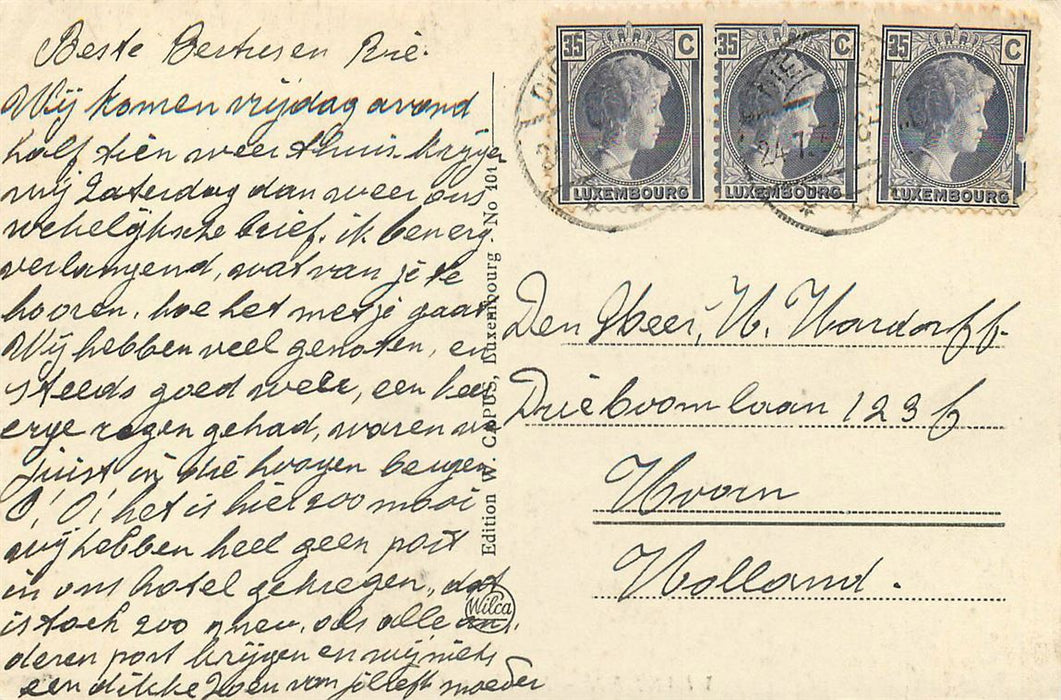 Beste Bertus en Rie.
Wij komen vrijdag avond
half tien weer thuis. krijgen
wij Zaterdag dan weer ons
wekelijksche brief. ik ben erg
verlangend, wat van je te
hooren, hoe het met je gaat
Wij hebben veel genoten, en
steeds goed weer, een keer
erge regen gehad, waren we
juist in die hoogen bergen
O, O, het is hier zoo mooi
wij hebben heel geen post
in ons hotel gekregen, dat
is toch zoo naar, als alle an-
deren post krijgen en wij niets
een dikke Zoen van jelleft moeder
Edition W. CAPUS, Luxembourg. No 101
Wilca
35 C
LUXEMBOURG
35 C
LUXEMBOURG
35 C
LUXEMBOURG
24.7.
Den Heer, H. Hardorff.
Drieboomlaan 123 b
Hoorn
Holland.